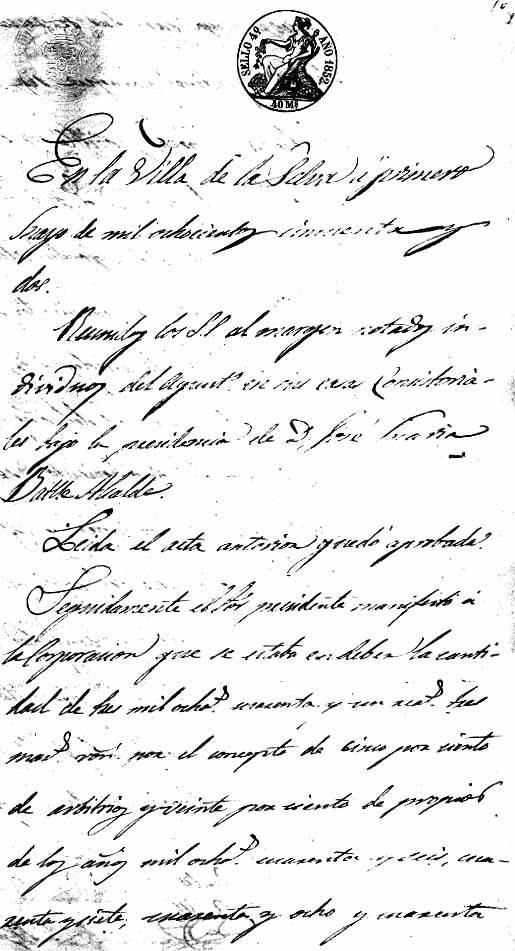 SELLO 4º AÑO 1852.
40 Mˢ
En la Villa de la Selva á primero
Mayo de mil ochocientos cincuenta y
dos.
Reunidos los S.S. al margen notados in-
dividuos del Ayuntº en sus casas Consistoria-
les bajo la presidencia de D. José Maria
Batlle Alcalde.
Leida el acta anterior quedó aprobada.
Seguidamente el Sor presidente manifestó á
la Corporacion que se estaba en deber la canti-
dad de tres mil ochoˢ cuarenta y un reaˢ tres
marˢ von por el concepto de cinco por ciento
de arbitrios y veinte por ciento de propios
de los años mil ochoˢ cuarenta y seis, cua-
renta y siete, cuarenta y ocho y cuarenta